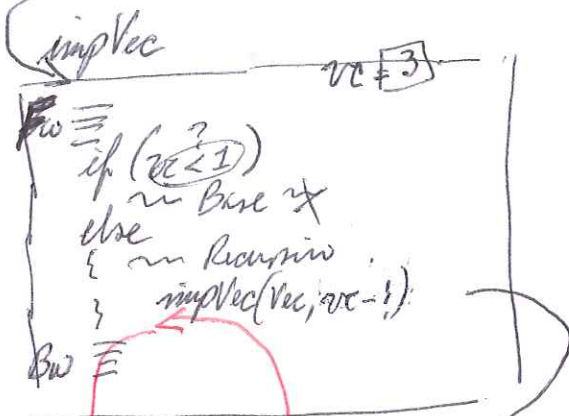 impVec
vc = 3
Bw
?
if (vc < 1)
~ Base
else
{ ~ Recursivo
impVec(Vec, vc-1)
}
Bw